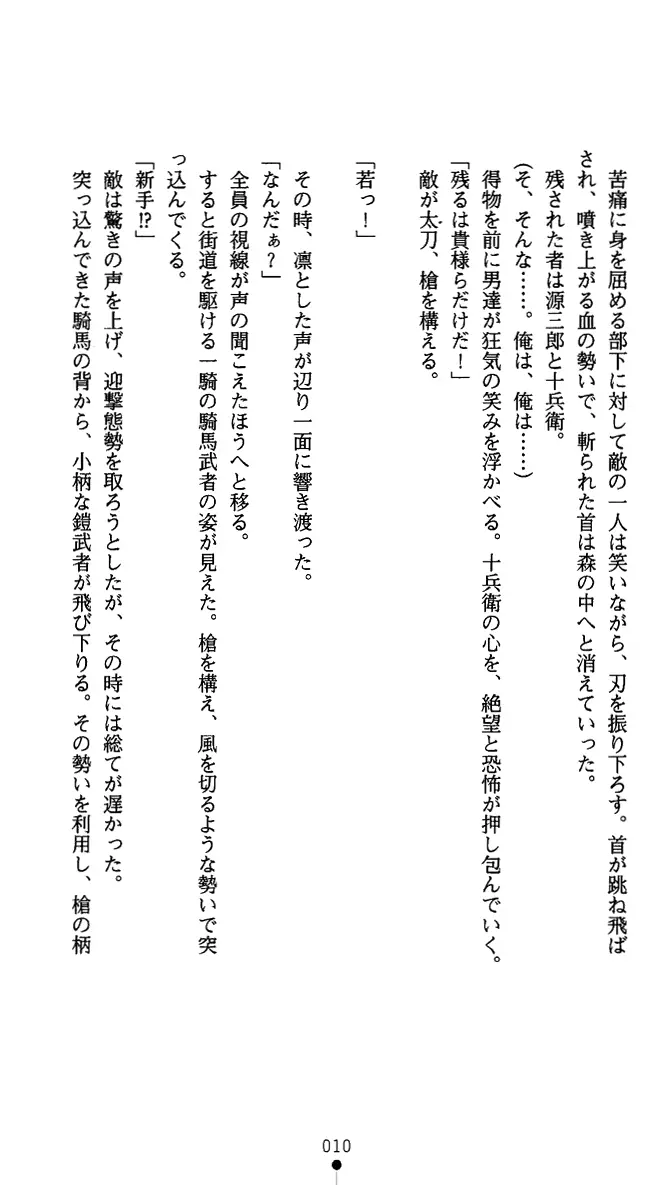 苦痛に身を屈める部下に対して敵の一人は笑いながら、刃を振り下ろす。首が跳ね飛ば
され、噴き上がる血の勢いで、斬られた首は森の中へと消えていった。
残された者は源三郎と十兵衛。
(そ、そんな……。俺は、俺は……)
得物を前に男達が狂気の笑みを浮かべる。十兵衛の心を、絶望と恐怖が押し包んでいく。
「残るは貴様らだけだ!」
敵が太刀、槍を構える。
「若っ!」
その時、凛とした声が辺り一面に響き渡った。
「なんだぁ?」
全員の視線が声の聞こえたほうへと移る。
すると街道を駆ける一騎の騎馬武者の姿が見えた。槍を構え、風を切るような勢いで突
っ込んでくる。
「新手!?」
敵は驚きの声を上げ、迎撃態勢を取ろうとしたが、その時には総てが遅かった。
突っ込んできた騎馬の背から、小柄な鎧武者が飛び下りる。その勢いを利用し、槍の柄
010